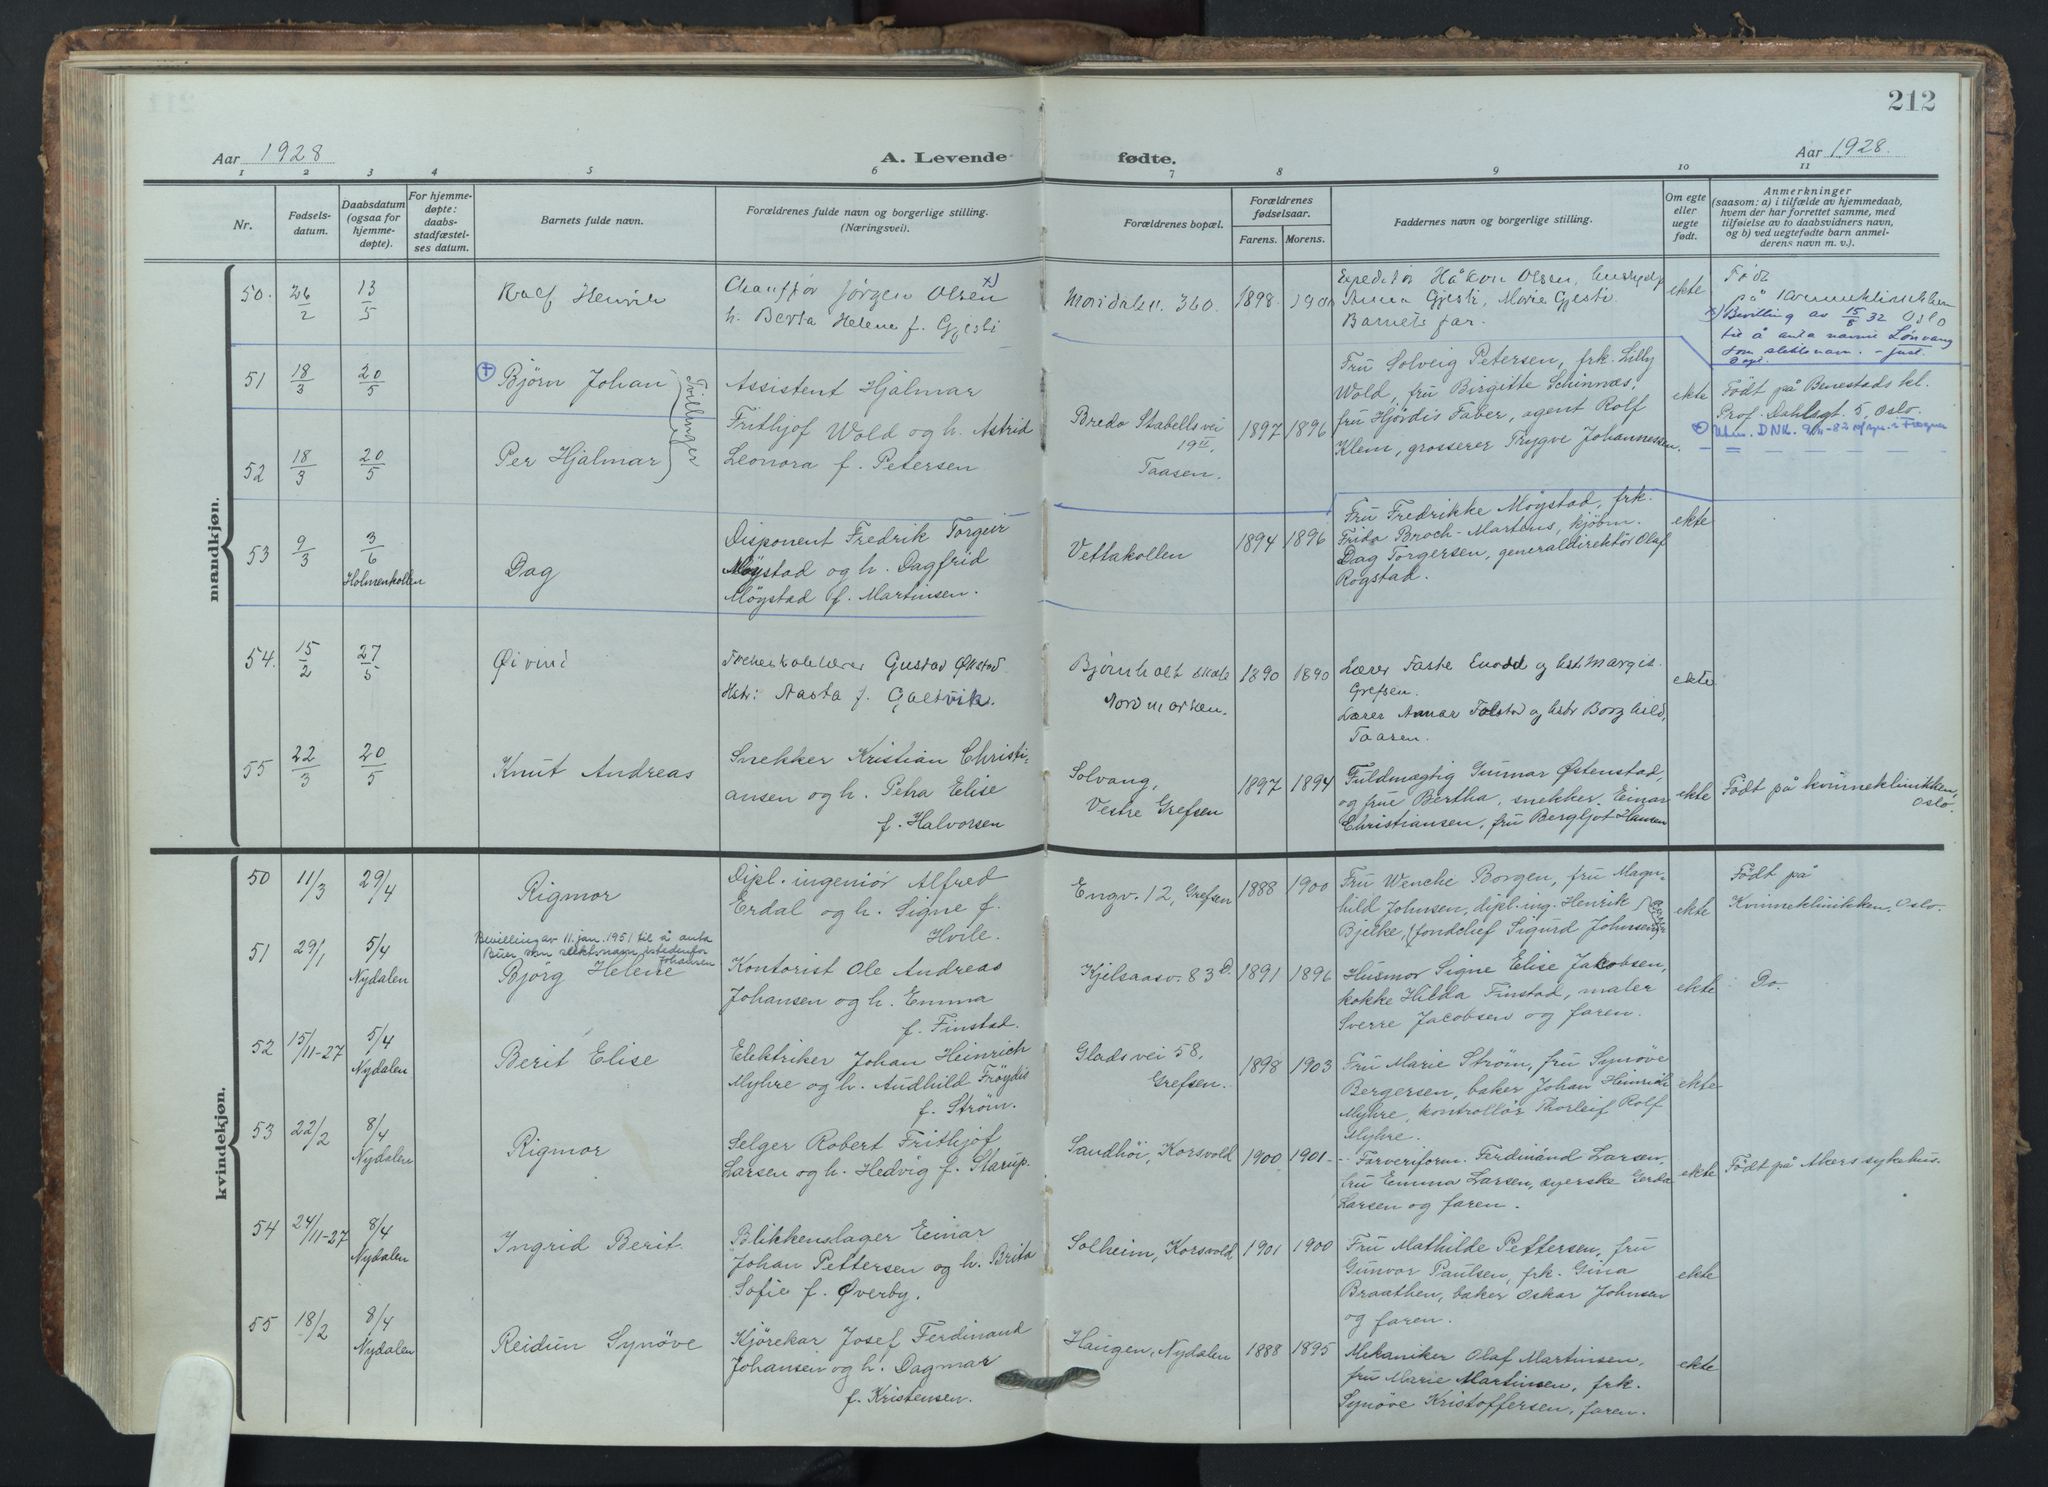 212
Aar 1928
A. Levende fødte.
Aar 1928.
1 2 3 4 5 6 7 8 9 10 11
Nr.
Fødsels-
datum.
Daabsdatum
(ogsaa for
hjemme-
døpte).
For hjemme-
døpte:
daabs-
stadfæstel-
ses datum.
Barnets fulde navn.
Forældrenes fulde navn og borgerlige stilling.
(Næringsvei).
Forældrenes bopæl.
Forældrenes
fødselsaar.
Farens. Morens.
Faddernes navn og borgerlige stilling.
Om egte
eller
uegte
født.
Anmerkninger
(saasom: a) i tilfælde av hjemmedaab,
hvem der har forrettet samme, med
tilføielse av to daabsvidners navn,
og b) ved uegtefødte barn anmel-
derens navn m. v.).
mandkjøn.
50. 26/2 13/5 Rolf Henrik
Chauffør Jørgen Olsen x)
h. Berta Helene f. Gjesti
Maridalsv. 360. 1898. 1900
Expeditør Håkon Olsen,
Anna Gjesti, Marie Gjesti.
Barnets far.
ekte
Født
på Kvinneklinikken
Oslo
x) Bevilling av 15/8 32
til å anta navnet Lönvang
som slektsnavn. - Just.
Dept.
51 18/3 20/5 Björn Johan
Tvillinger
52 18/3 20/5 Per Hjalmar
Assistent Hjalmar
Frithjof Wold og h. Astrid
Leonora f. Petersen
Bredo Stabells vei
19 II,
Taasen.
1897 1896
Fru Solveig Petersen, frk. Lilly
Wold, fru Birgitte Schinnæs,
fru Hjördis Faber, agent Rolf
Klem, grosserer Trygve Johannessen.
ekte
Født på Benestads kl.
Prof. Dahlsgt. 5, Oslo.
Utm. DNK.
53 9/3 3/6 Holmenkollen Dag
Disponent Fredrik Torgeir
Möystad og h. Dagfrid
Möystad f. Martinsen.
Vettakollen 1894 1896
Fru Fredrikke Möystad, frk.
Frida Broch-Martens, kjöbm.
Dag Torgersen, generaldirektör Olaf
Rogstad.
ekte
54. 15/2 27/5 Øivind
Gustad Økstad
Hstr: Aasta f. Galtvik.
Bjørnholt skole
Nordmarken.
1890 1890
Lærer Taste og hstr Margit
Grefsen.
Lærer Anmar Tolstad og hstr Borghild,
Taasen.
ekte
55 22/3 20/5 Knut Andreas
Snekker Kristian Christi-
ansen og h. Petra Elise
f. Halvorsen
Solvang,
Vestre Grefsen
1897 1894
Fuldmægtig Gunnar Østenstad,
og frue Bertha, snekker Einar
Christiansen, fru Bergljot Hansen
ekte
Født på kvinneklinikken,
Oslo.
kvindekjøn.
50 11/3 29/4 Rigmor
Dipl.-ingeniør Alfred
Erdal og h. Signe f.
Hvile.
Engv. 12, Grefsen 1888 1900
Fru Wenche Borgen, fru Magn-
hild Johnsen, dipl.-ing. Henrik
Bjelke, fondchef Sigurd Johnsen
ekte
Født på
Kvinneklinikken, Oslo.
51 29/1 5/4 Nydalen
Bevilling av 11. jan. 1951 til å anta
Buer som slektsnavn istedenfor
Johansen
Björg Helene
Kontorist Ole Andreas
Johansen og h. Emma
f. Finstad.
Kjelsaasv. 83 D. 1891 1896
Husmor Signe Elise Jakobsen,
kokke Hilda Finstad, maler
Sverre Jacobsen og faren.
ekte
Do.
52 15/11-27 5/4 Nydalen Berit Elise
Elektriker Johan Heinrich
Myhre og h. Audhild Fröydis
f. Ström.
Glads vei 58,
Grefsen.
1898 1903
Fru Marie Ström, fru Synöve
Bergersen, baker Johan Heinrich
Myhre, kontrollör Thorleif Rolf
Myhre.
ekte
53 22/2 8/4 Nydalen Rigmor
Selger Robert Frithjof
Larsen og h. Hedvig f. Starup.
Sandhöi, Korsvold 1900 1901
Farveriform. Ferdinand Larsen,
fru Emma Larsen, syerske Gerda
Larsen og faren.
ekte
Född på Akers sykehus.
54 24/11-27 8/4 Nydalen Ingrid Berit
Blikkenslager Einar
Johan Pettersen og h. Brita
Sofie f. Øverby.
Solheim, Korsvold 1901 1900
Fru Mathilde Pettersen, fru
Gunvor Paulsen, frk. Gina
Braathen, baker Oskar Johnsen
og faren.
ekte
55 18/2 8/4 Nydalen Reidun Synöve
Kjörekar Josef Ferdinand
Johansen og h. Dagmar
f. Kristensen.
Haugen, Nydalen 1888 1895
Mekaniker Olaf Martinsen,
fru Marie Martinsen, frk.
Synöve Kristoffersen, faren.
ekte